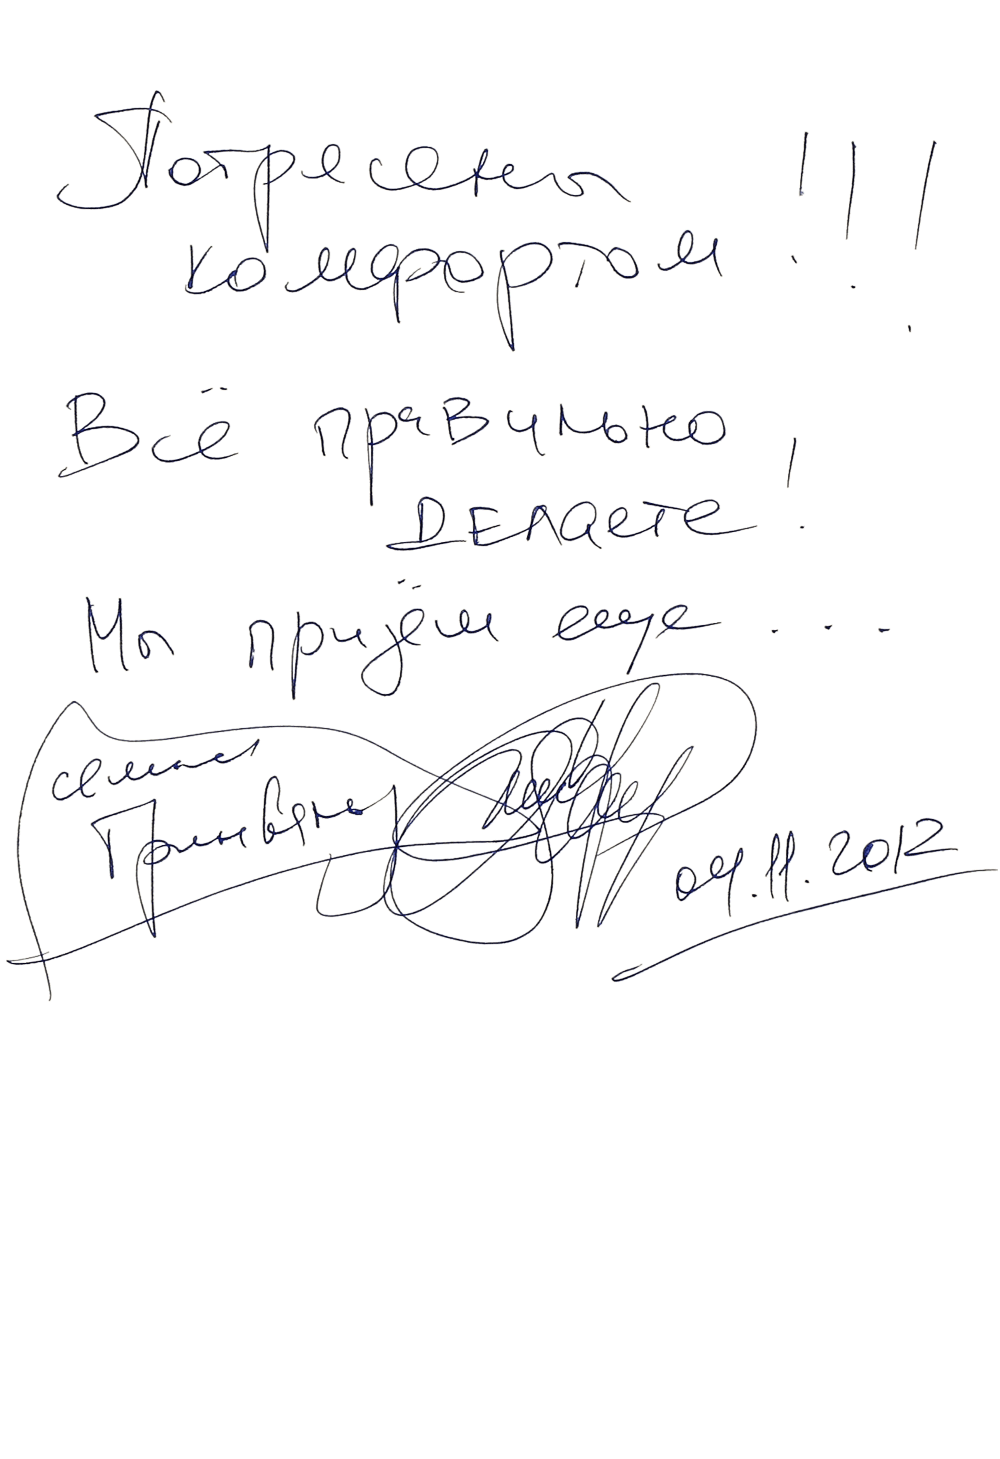 Потресены
комфортом!!!
Всё правильно
делаете!
Мы придём еще...
семья
04.11.2012